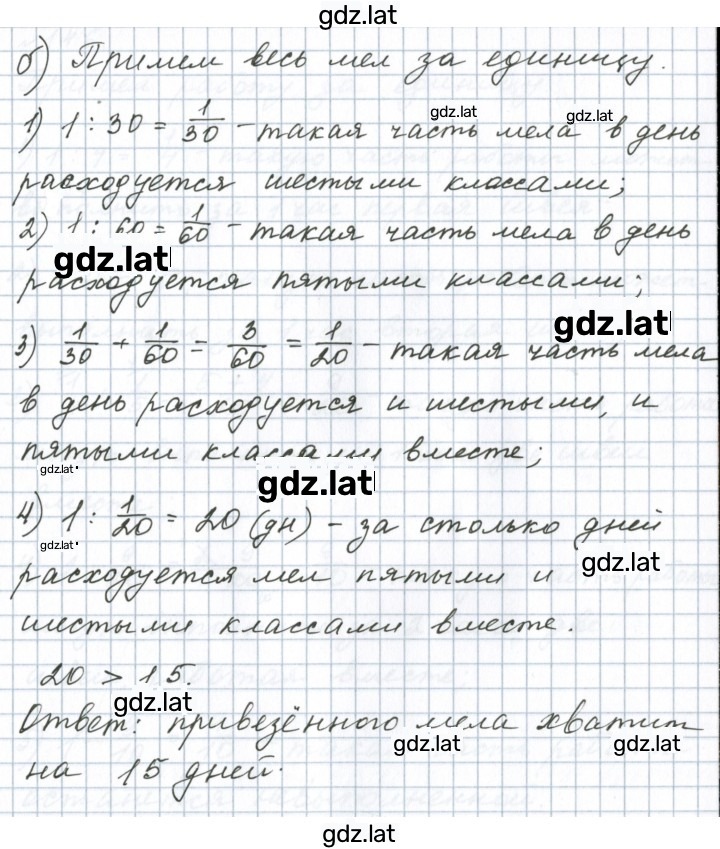 gdz.lat
б) Примем весь мел за единицу.
gdz.lat
gdz.lat
1) 1 : 30 = 1/30 – такая часть мела в день
расходуется шестыми классами;
2) 1 : 60 = 1/60 – такая часть мела в день
gdz.lat
расходуется пятыми классами;
gdz.lat
3) 1/30 + 1/60 = 3/60 = 1/20 – такая часть мела
в день расходуется и шестыми, и
пятыми классами вместе;
gdz.lat
gdz.lat
4) 1 : 1/20 = 20 (дн) – за столько дней
gdz.lat
gdz.lat
расходуется мел пятыми и
шестыми классами вместе.
20 > 15.
gdz.lat
Ответ: привезённого мела хватит
gdz.lat
gdz.lat
на 15 дней.
gdz.lat